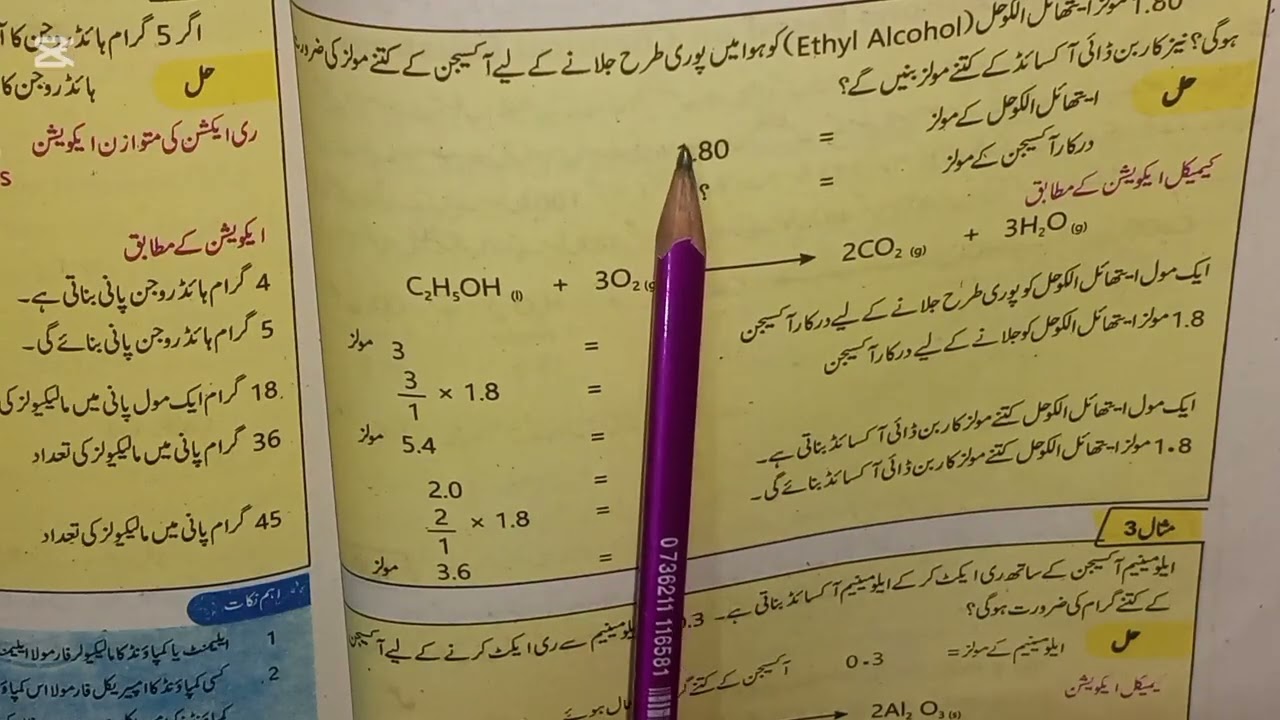 1.80 مولز ایتھائل الکوحل (Ethyl Alcohol) کو ہوا میں پوری طرح جلانے کے لیے آکسیجن کے کتنے مولز کی
ہوگی؟ نیز کاربن ڈائی آکسائڈ کے کتنے مولز بنیں گے؟
حل
ایتھائل الکوحل کے مولز = .80
درکار آکسیجن کے مولز = ؟
کیمیکل ایکویشن کے مطابق
C₂H₅OH (l) + 3O₂ (g → 2CO₂ (g) + 3H₂O (g)
ایک مول ایتھائل الکوحل کو پوری طرح جلانے کے لیے درکار آکسیجن = 3 مولز
1.8 مولز ایتھائل الکوحل کو جلانے کے لیے درکار آکسیجن = 3/1 × 1.8
= 5.4 مولز
ایک مول ایتھائل الکوحل کتنے مولز کاربن ڈائی آکسائڈ بناتی ہے۔ = 2.0
1.8 مولز ایتھائل الکوحل کتنے مولز کاربن ڈائی آکسائڈ بنائے گی۔ = 2/1 × 1.8
= 3.6 مولز
مثال 3
ایلومینیم آکسیجن کے ساتھ ری ایکٹ کر کے ایلومینیم آکسائڈ بناتی ہے۔ 0.3 سے ری ایکٹ کرنے کے لیے آکسیجن
کے کتنے گرام کی ضرورت ہوگی؟
حل
ایلومینیم کے مولز = 0.3
آکسیجن کے کتنے
کیمیکل ایکویشن
2Al₂ O₃ (s)
اگر 5 گرام ہائڈروجن کا
حل
ہائڈروجن کا
ری ایکشن کی متوازن ایکویشن
s
ایکویشن کے مطابق
4 گرام ہائڈروجن پانی بناتی ہے۔
5 گرام ہائڈروجن پانی بنائے گی۔
18 گرام ایک مول پانی میں مالیکیولز کی
36 گرام پانی میں مالیکیولز کی تعداد
45 گرام پانی میں مالیکیولز کی تعداد
اہم نکات
1 ایلیمنٹ یا کمپاؤنڈ کا مالیکیولر فارمولا اس
2. کسی کمپاؤنڈ کا امپیریکل فارمولا اس
0 736211 116581